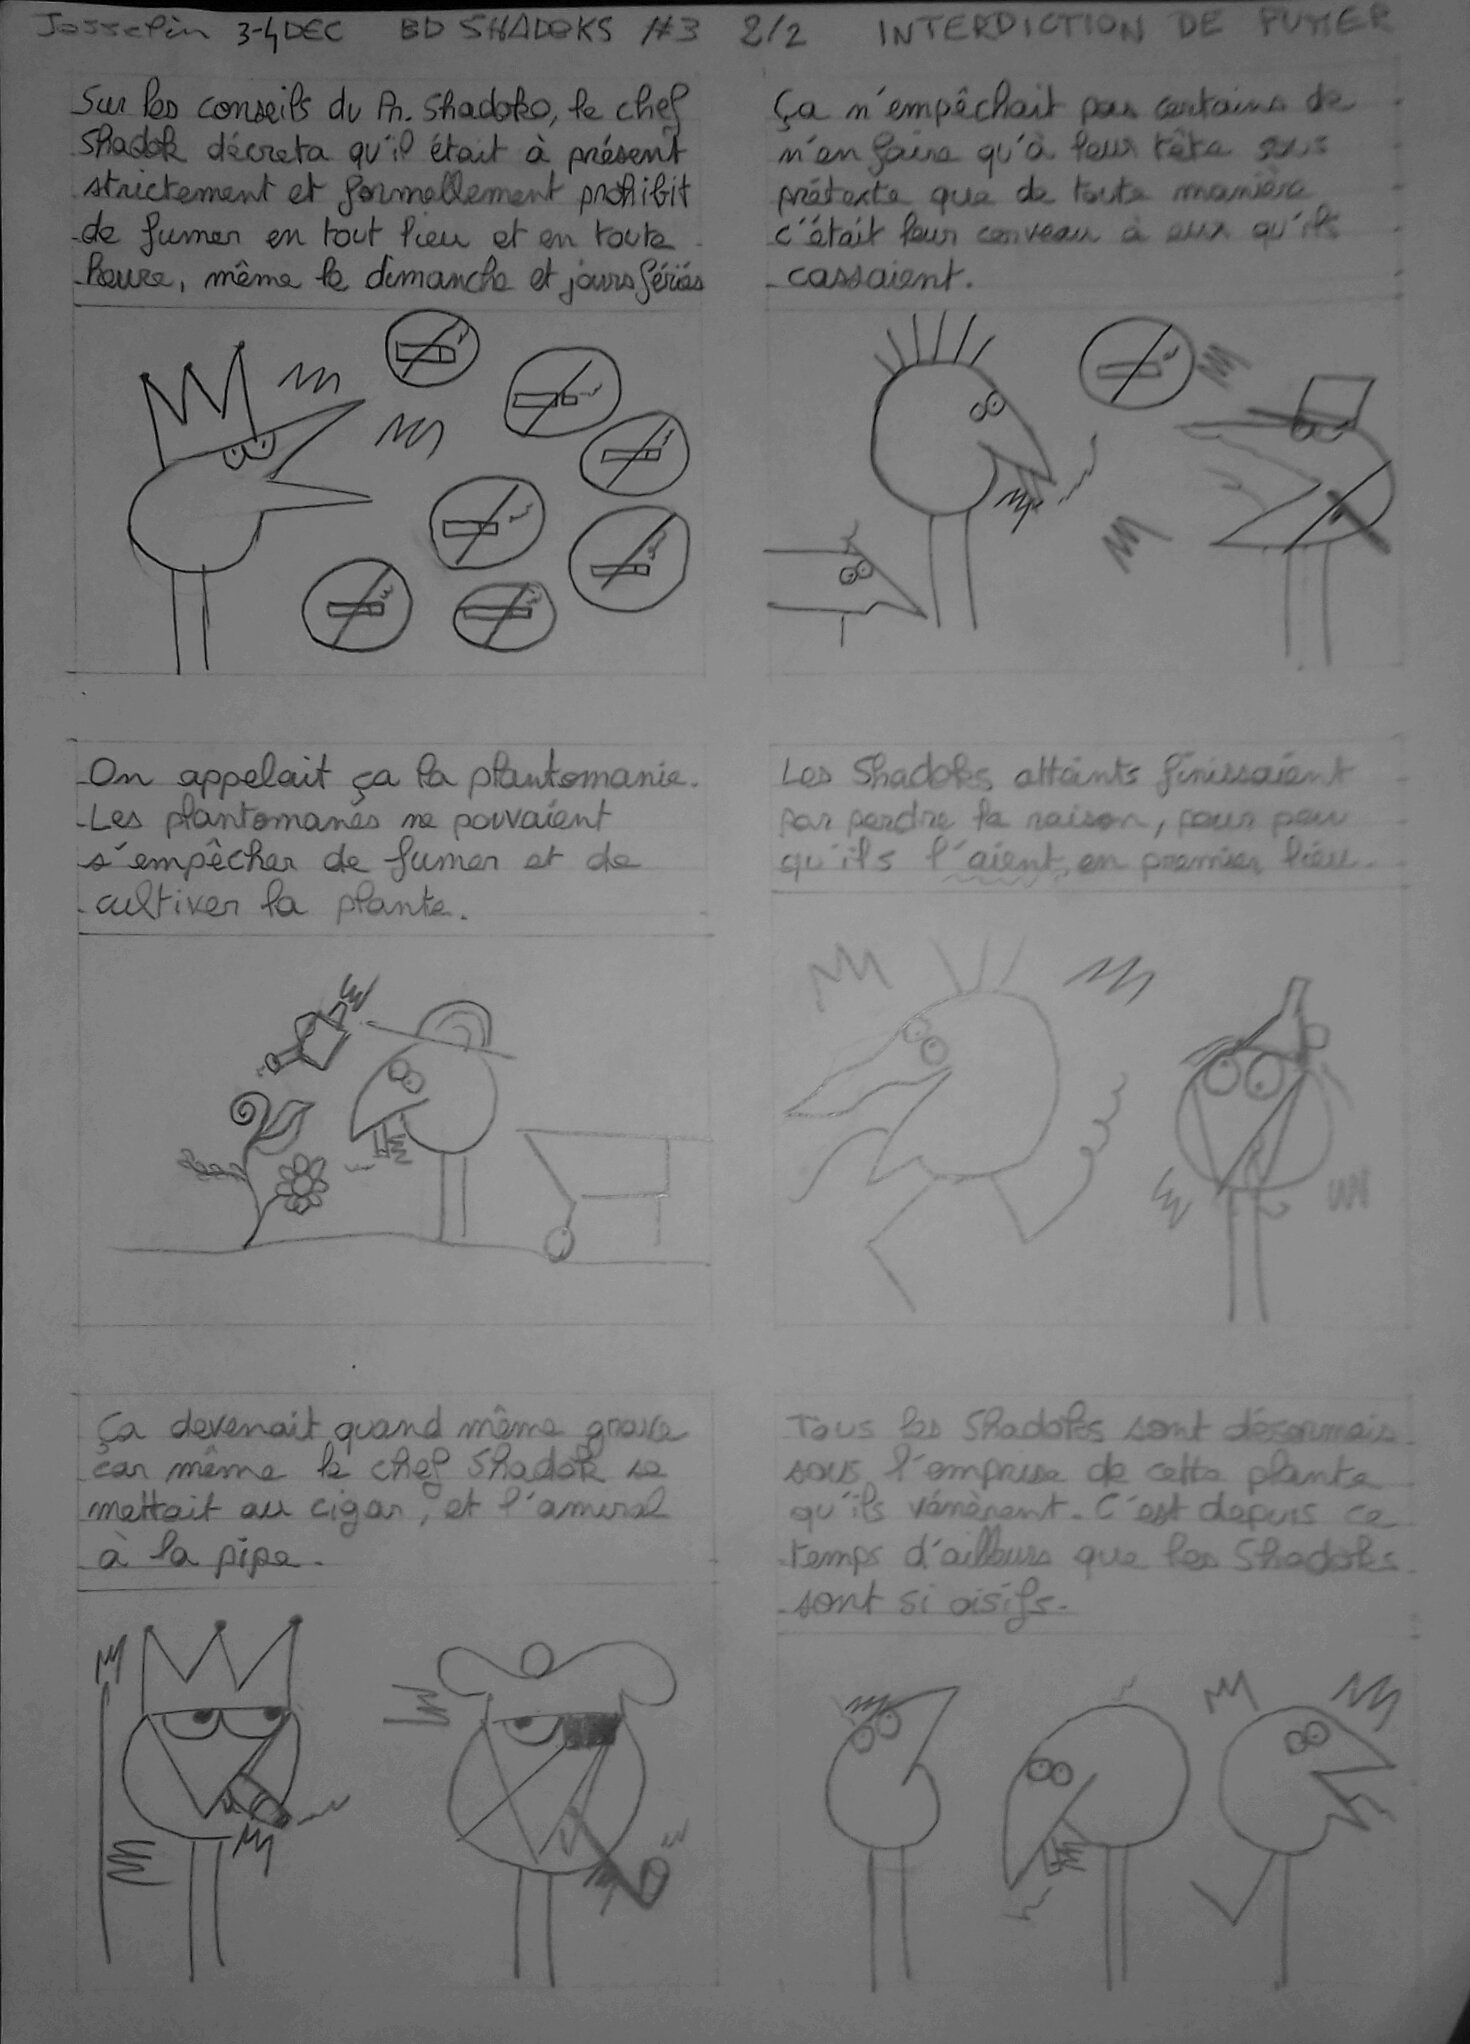 Josselin 3-4 DEC BD SHADOKS #3 2/2 INTERDICTION DE FUMER
Sur les conseils du Pr. Shadoko, le chef
Shadok décreta qu'il était à présent
strictement et formellement prohibit
de fumer en tout lieu et en toute
heure, même le dimanche et jours fériés
Ça n'empêchait pas certains de
n'en faire qu'à leur tête sous
prétexte que de toute manière
c'était leur cerveau à eux qu'ils
cassaient.
On appelait ça la plantomanie.
Les plantomanes ne pouvaient
s'empêcher de fumer et de
cultiver la plante.
Les Shadoks atteints finissaient
par perdre la raison, pour peu
qu'ils l'aient en premier lieu.
Ça devenait quand même grave
car même le chef Shadok se
mettait au cigar, et l'amiral
à la pipe.
Tous les Shadoks sont désormais
sous l'emprise de cette plante
qu'ils vénèrent. C'est depuis ce
temps d'ailleurs que les Shadoks
sont si oisifs.